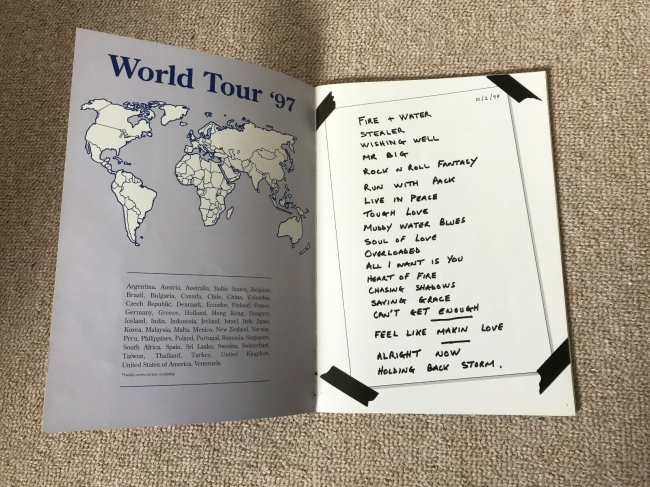 World Tour '97
Argentina, Austria, Australia, Baltic States, Belgium,
Brazil, Bulgaria, Canada, Chile, China, Columbia,
Czech Republic, Denmark, Ecuador, Finland, France,
Germany, Greece, Holland, Hong Kong, Hungary,
Iceland, India, Indonesia, Ireland, Israel, Italy, Japan,
Korea, Malaysia, Malta, Mexico, New Zealand, Norway,
Peru, Philippines, Poland, Portugal, Romania, Singapore,
South Africa, Spain, Sri Lanka, Sweden, Switzerland,
Taiwan, Thailand, Turkey, United Kingdom,
United States of America, Venezuela.
FIRE + WATER
STEALER
WISHING WELL
MR BIG
ROCK N ROLL FANTASY
RUN WITH PACK
LIVE IN PEACE
TOUGH LOVE
MUDDY WATER BLUES
SOUL OF LOVE
OVERLOADED
ALL I WANT IS YOU
HEART OF FIRE
CHASING SHADOWS
SAVING GRACE
CAN'T GET ENOUGH
FEEL LIKE MAKIN LOVE
ALRIGHT NOW
HOLDING BACK STORM.